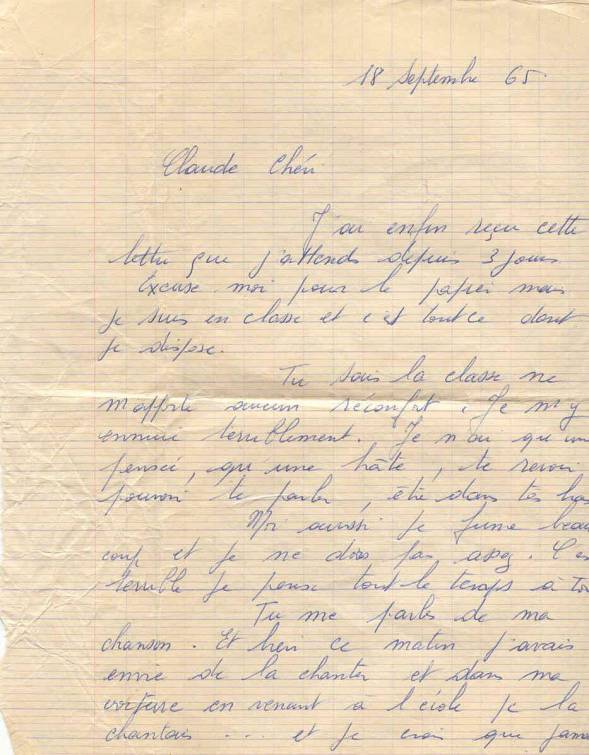 18 Septembre 65.
Claude Chéri
J'ai enfin reçu cette
lettre que j'attends depuis 3 jours
Excuse moi pour le papier mais
je suis en classe et c'est tout ce dont
je dispose.
Tu sais la classe ne
m'apporte aucun réconfort. Je m'y
ennuie terriblement. Je n'ai qu'une
pensée, qu'une hâte, te revoir
pouvoir te parler, être dans tes bras
Moi aussi je fume beau
coup et je ne dors pas assez. C'es
terrible je pense tout le temps à toi
Tu me parles de ma
chanson. Et bien ce matin j'avais
envie de la chanter et dans ma
voiture en venant à l'école je la
chantais ... et je crois que jama